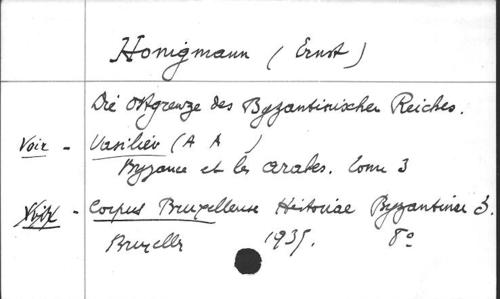 Honigmann (Ernst)
Die Ostgrenze des Byzantinischen Reiches.
Voir - Vasiliev (A A )
Byzance et les arabes. Tome 3
Voir - Corpus Bruxellense Historiae Byzantinae 3.
Bruxelles 1935. 8°